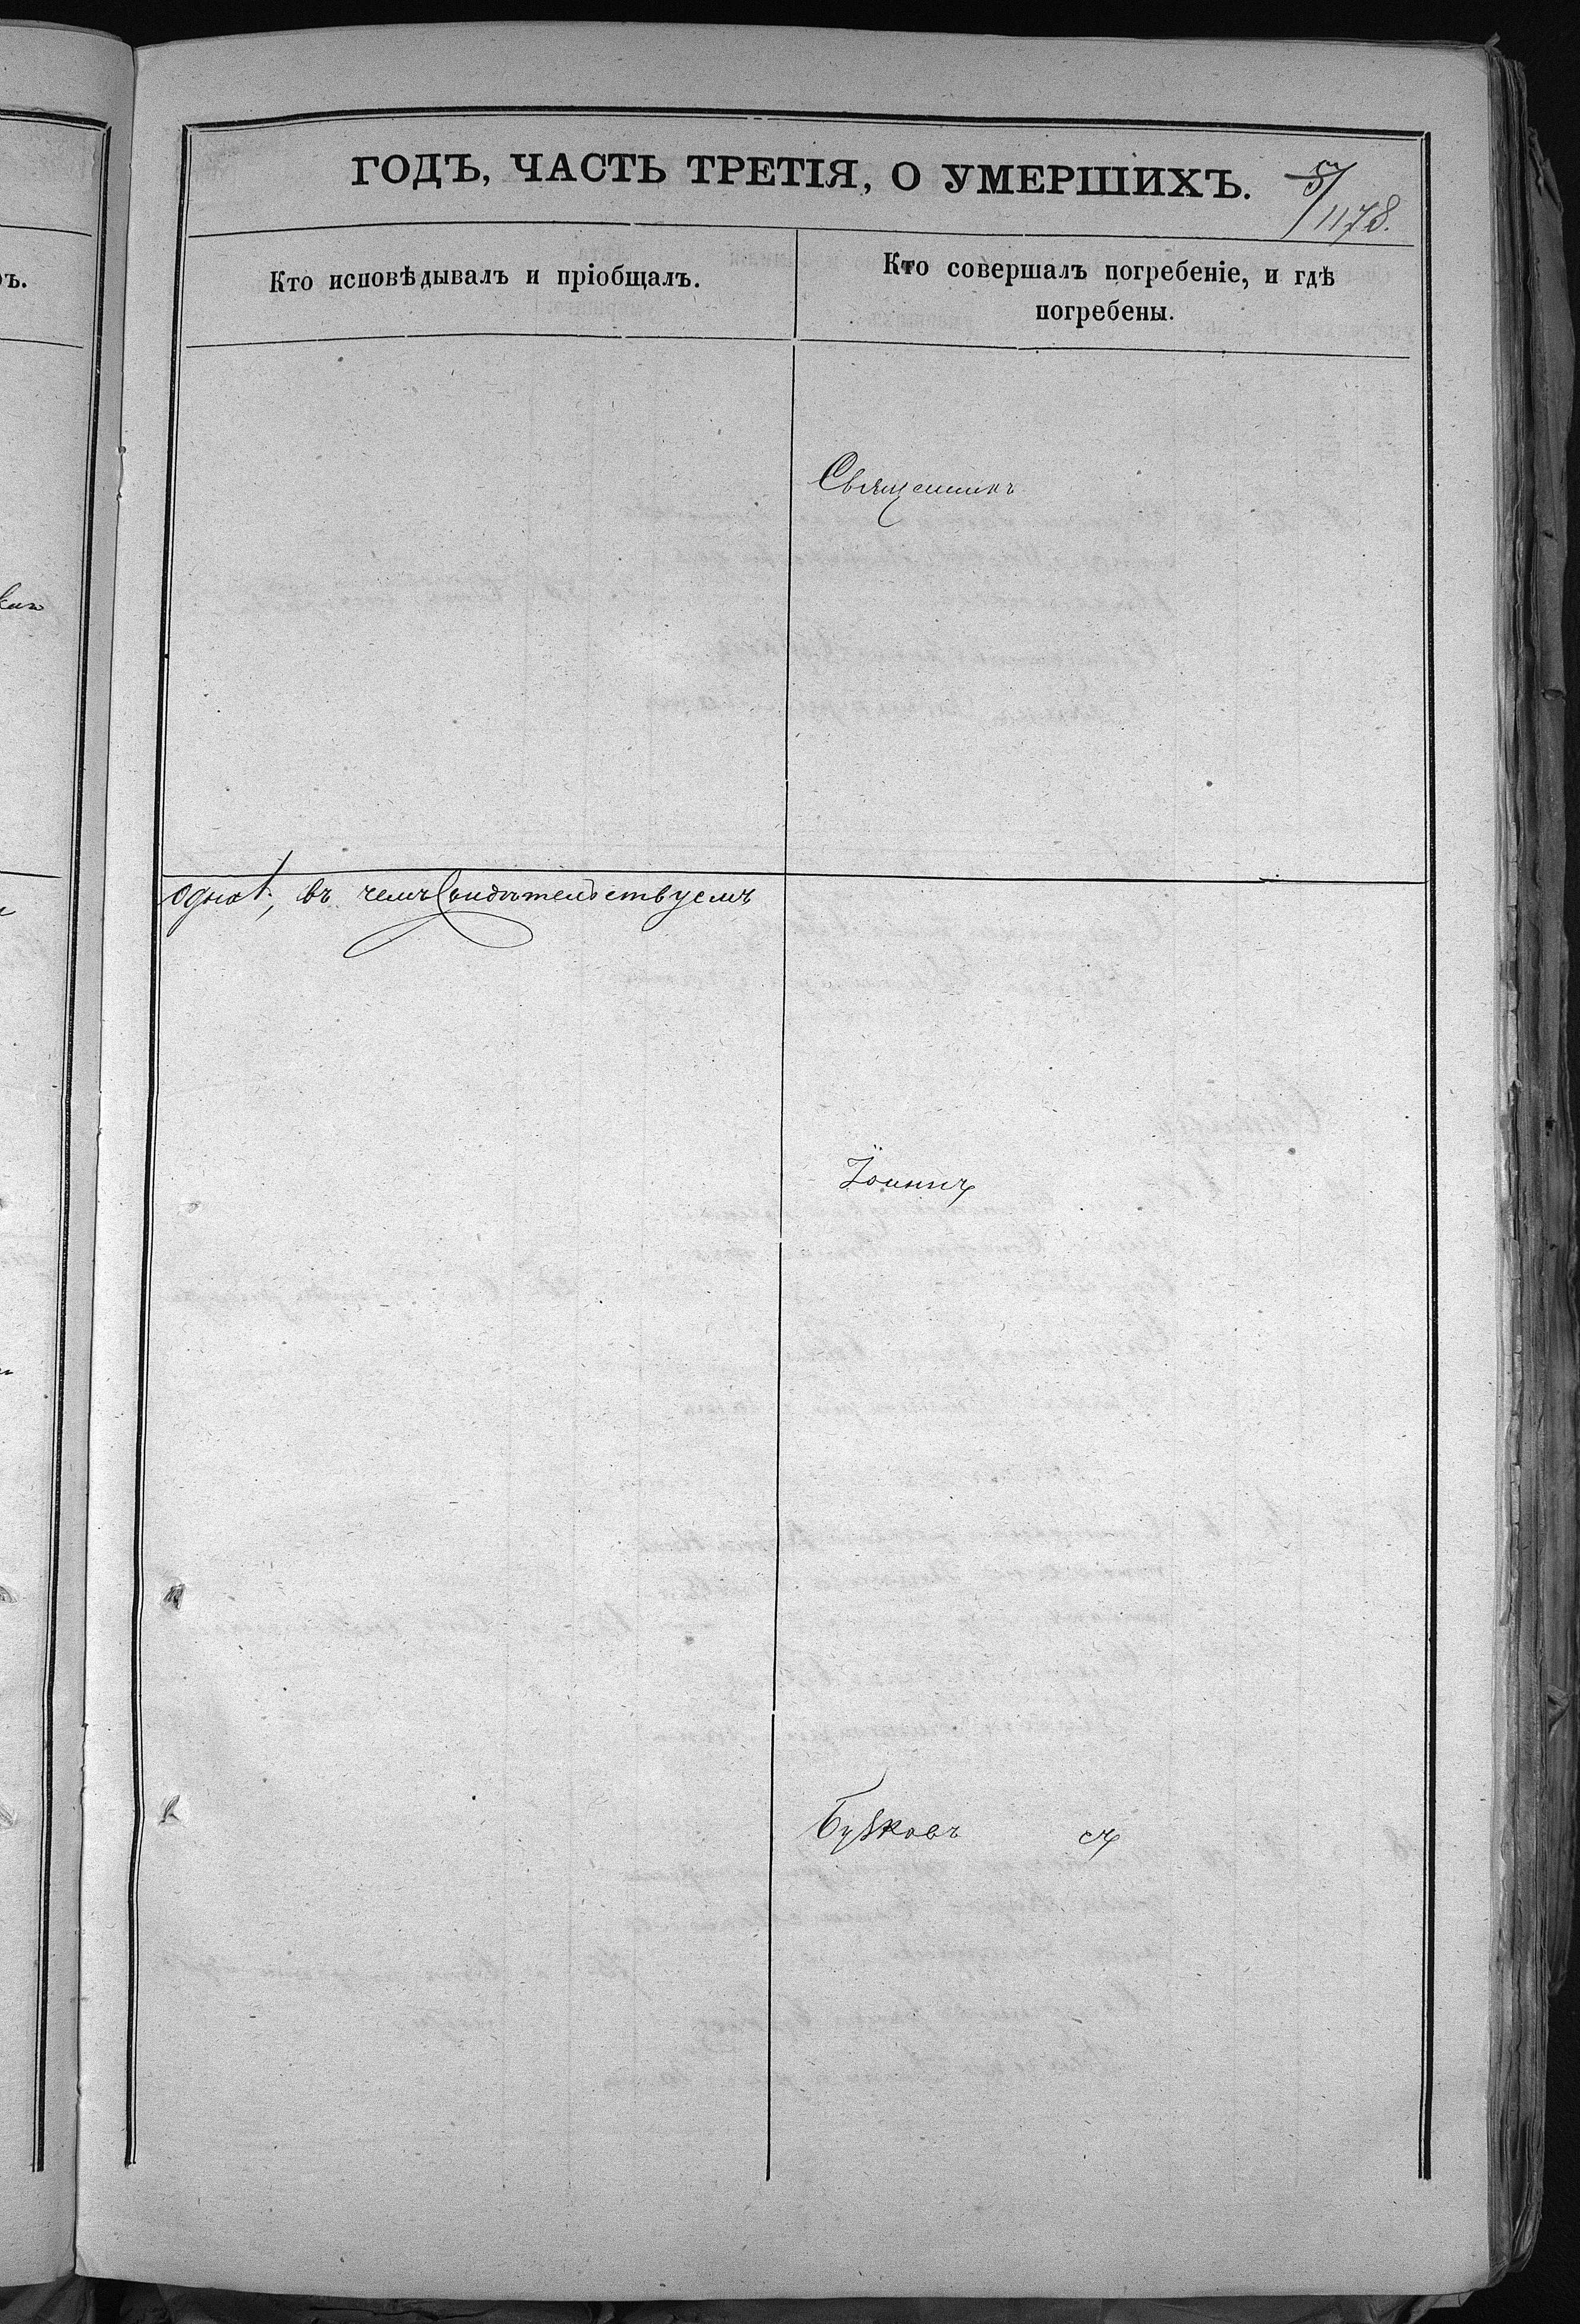 ГОДЪ, ЧАСТЬ ТРЕТІЯ, О УМЕРШИХЪ.
5/1178.
Кто исповѣдывалъ и пріобщалъ.
Кто совершалъ погребеніе, и гдѣ
погребены.
Священникъ
въ чемъ Свидѣтельствуемъ
Іоаннъ